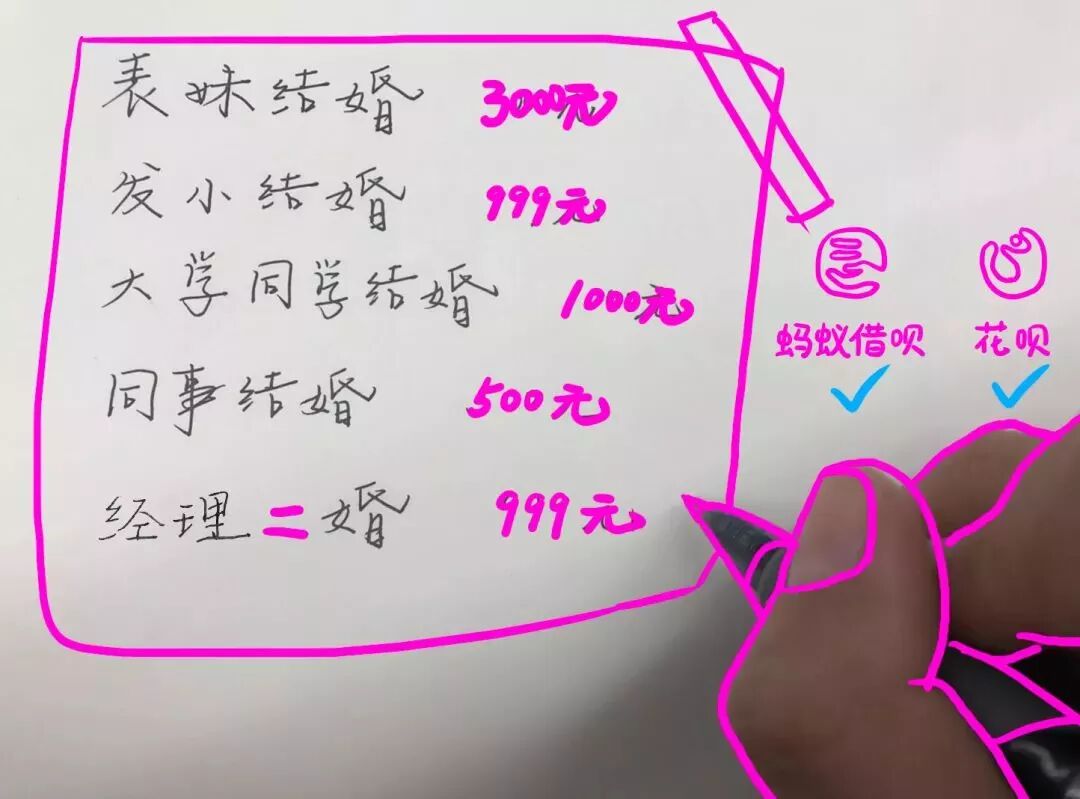 表妹结婚 3000元
发小结婚 999元
大学同学结婚 1000元
同事结婚 500元
经理二婚 999元
蚂蚁借呗 花呗